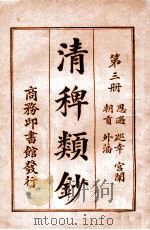 第三册
恩遇 巡幸 宫闈
朝貢 外藩
清稗類鈔
商務印書館發行
http://www.gujiku.com